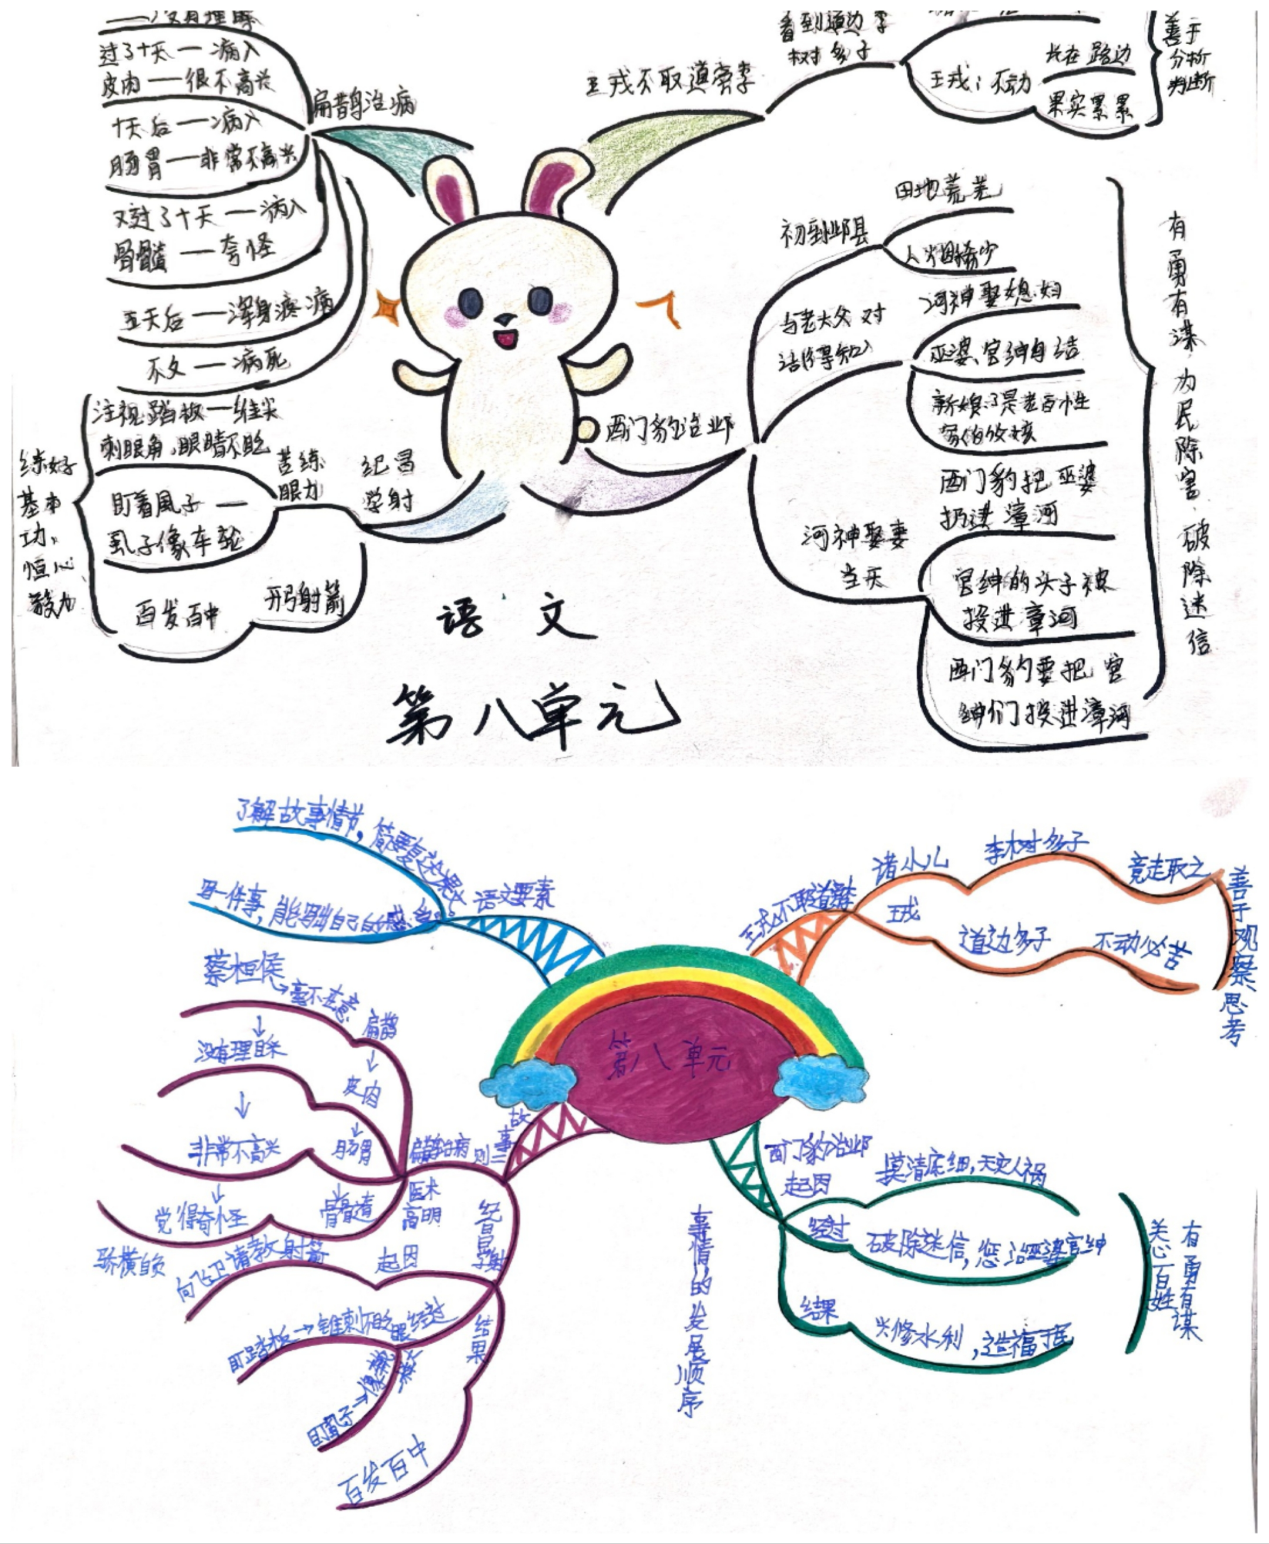 过了十天——病入
皮肉——很不高兴
十天后——病入
肠胃——非常不高兴
又过了十天——病入
骨髓——夸怪
五天后——浑身疼病
不久——病死
扁鹊治病
王戎不取道旁李
看到道边李
树多子
王戎：不动
长在路边
果实累累
善于
分析
判断
西门豹治邺
初到邺县
田地荒芜
人烟稀少
与老大爷对
话(得知)
河神娶媳妇
巫婆、官绅勾结
新娘：是老百姓
家的女孩
河神娶妻
当天
西门豹把巫婆
扔进漳河
官绅的头子被
投进章河
西门豹要把官
绅们投进漳河
有勇有谋为民除害.破除迷信
纪昌
学射
苦练
眼力
注视踏板——锥尖
刺眼角,眼睛不眨
盯着虱子——
虱子像车轮
开弓射箭
百发百中
练好
基本
功、
恒心
毅力
语文
第八单元
第八单元
语文要素
了解故事情节，简要复述课文
写一件事，能写出自己的感受
王戎不取道旁李
诸小儿
李树多子
竞走取之
王戎
道边多子
不动必苦
善于观察思考
故事二则
扁鹊治病
医术
高明
蔡桓侯→毫不在意
扁鹊
↓
没有理睬
↓
皮肉
↓
非常不高兴
↓
肠胃
↓
觉得奇怪
骨髓
骄横自负
纪昌学射
起因
向飞卫请教射箭
经过
盯踏板→锥刺不眨眼
盯虱子→
结果
百发百中
西门豹治邺
起因
摸清底细，天灾人祸
经过
破除迷信，惩治巫婆官绅
结果
兴修水利，造福于民
事情的发展顺序
有勇有谋
关心百姓